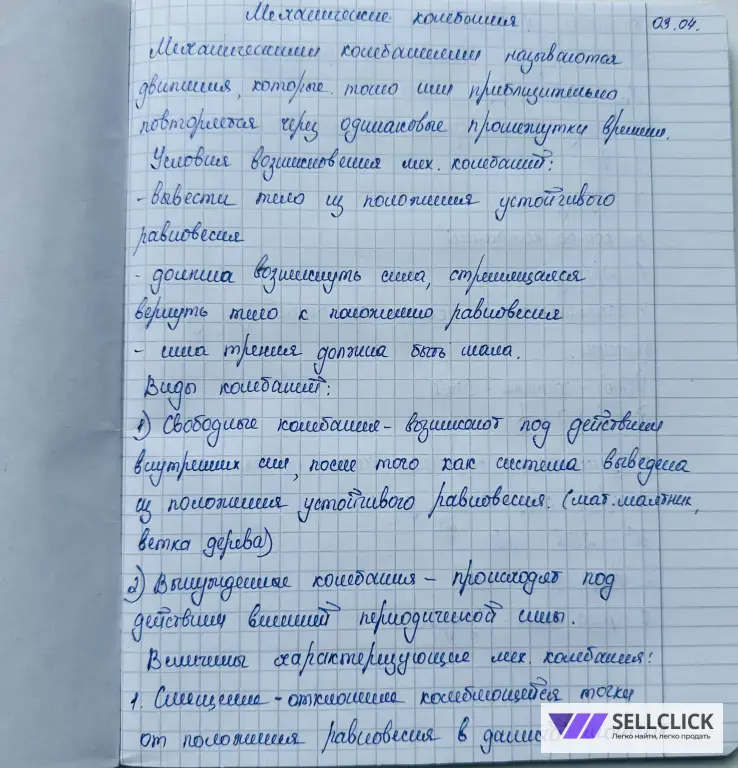 Механические колебания
03.04.
Механическими колебаниями называются
движения, которые точно или приблизительно
повторяется через одинаковые промежутки времени.
Условия возникновения мех. колебаний:
- вывести тело из положения устойчивого
равновесия
- должна возникнуть сила, стремящаяся
вернуть тело к положению равновесия
- сила трения должна быть мала.
Виды колебаний:
1) Свободные колебания - возникают под действием
внутренних сил, после того как система выведена
из положения устойчивого равновесия. (мат. маятник,
ветка дерева)
2) Вынужденные колебания - происходят под
действием внешней периодической силы.
Величины характеризующие мех. колебания:
1. Смещение - отклонение колеблющейся точки
от положения равновесия в
SELLCLICK
Легко найти, легко продать